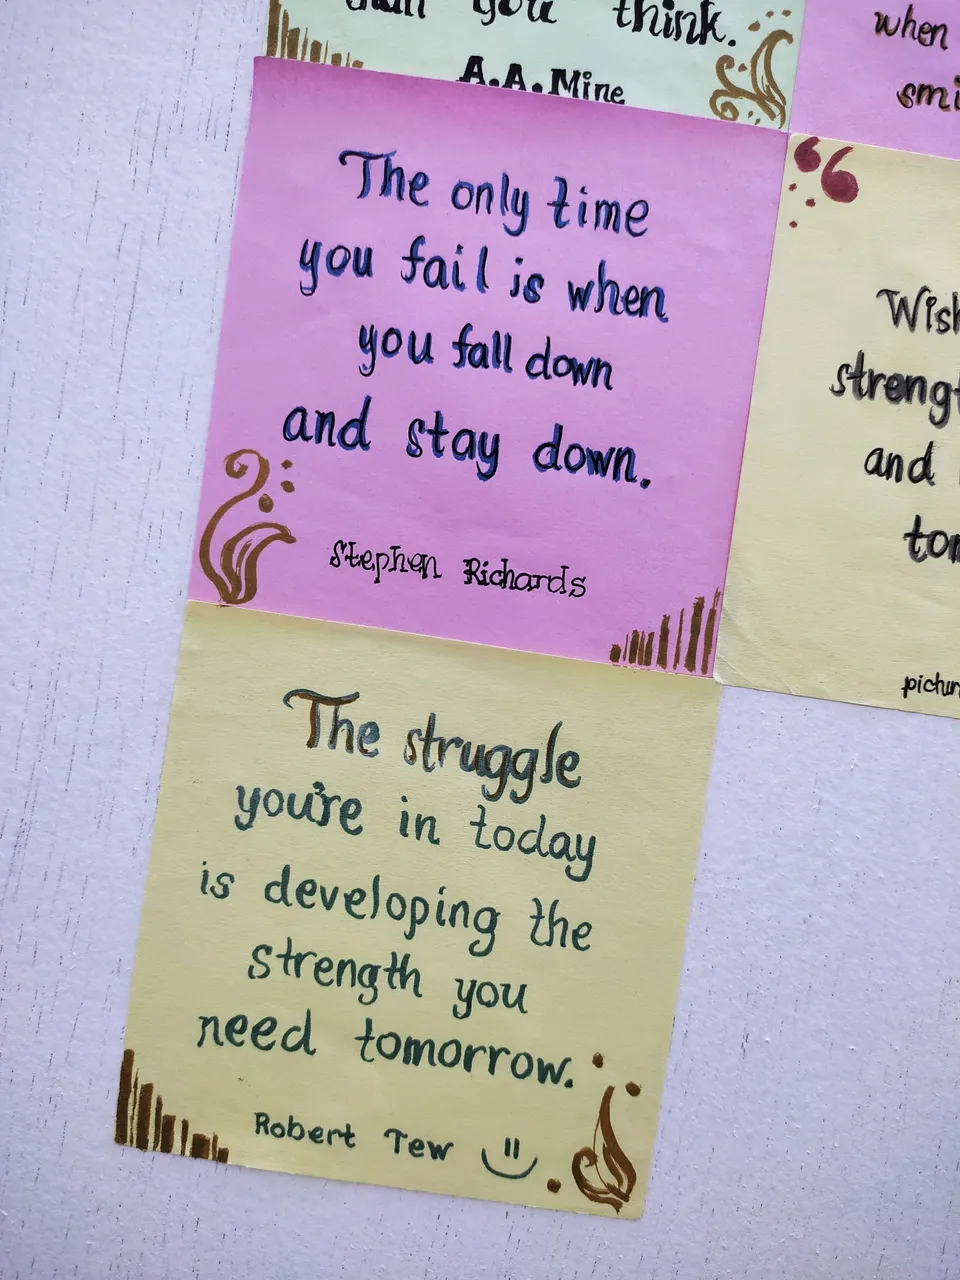 than you think.
A.A.Mine
when
smi
The only time
you fail is when
you fall down
and stay down.
Stephen Richards
Wish
strengt
and
tom
pictur
The struggle
you're in today
is developing the
strength you
need tomorrow.
Robert Tew